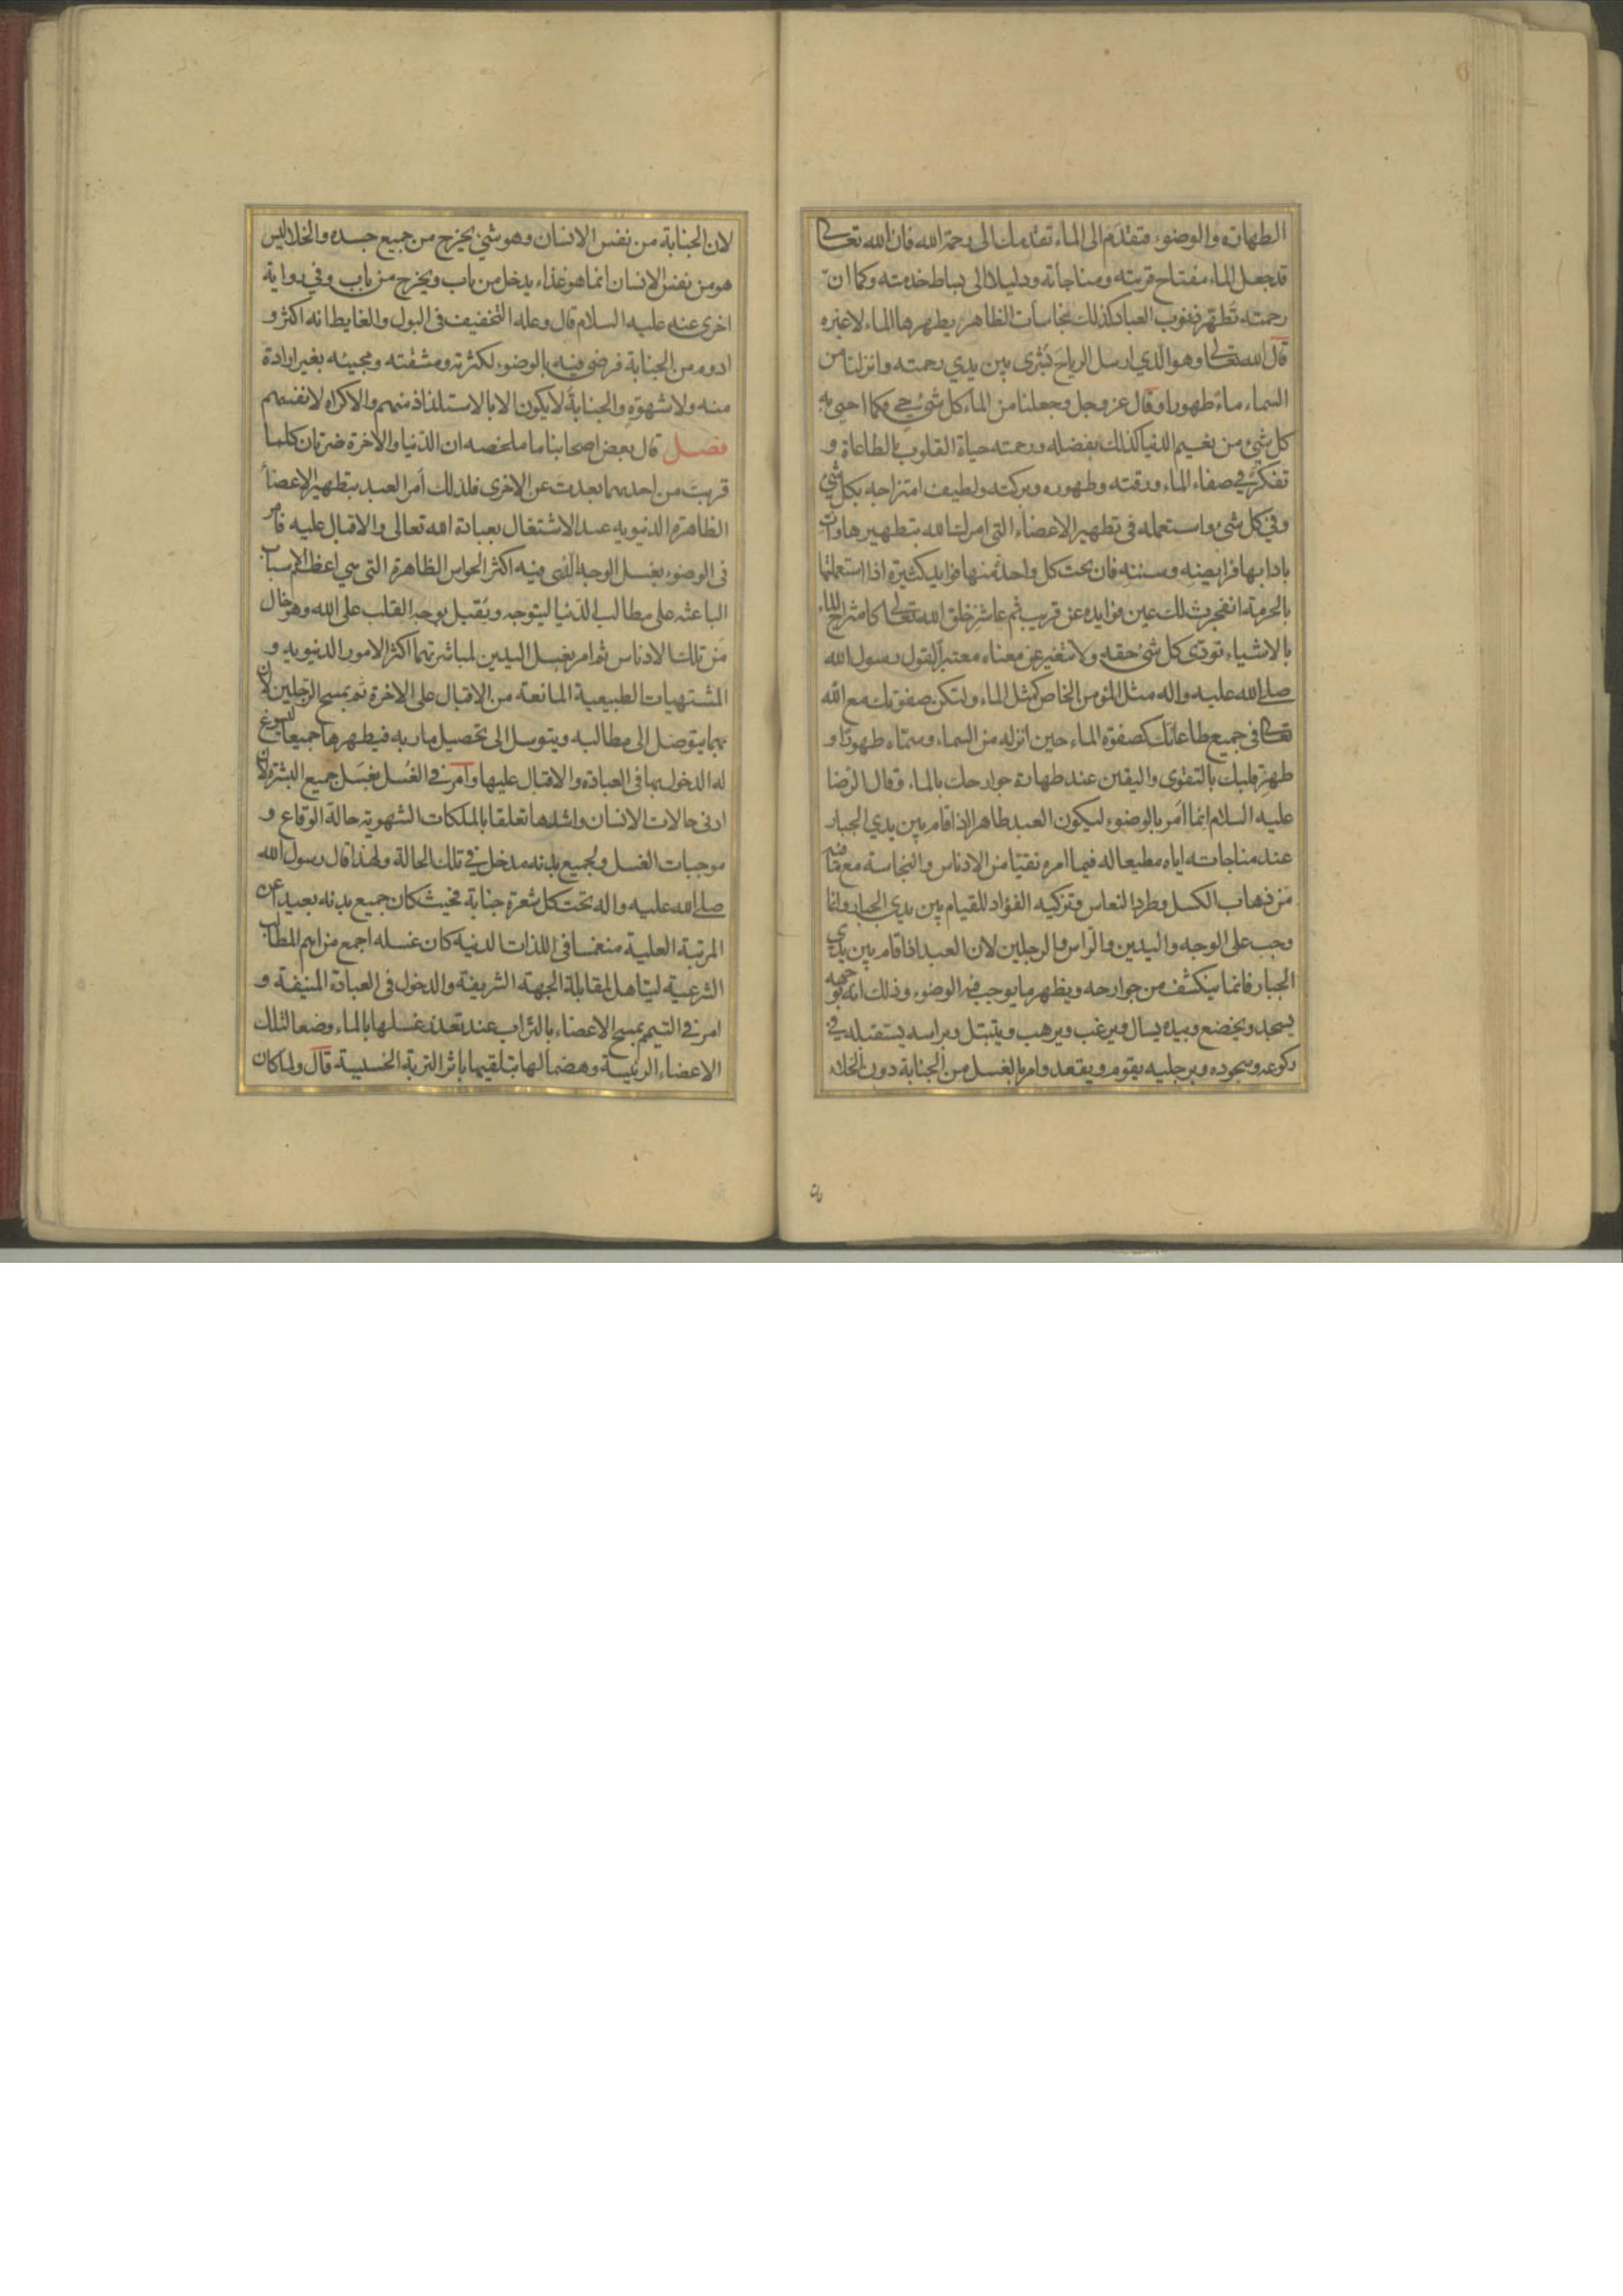 الطهارة والوضوء فتقدم الى الماء تقدمك الى رحمة الله فان الله تعالى
قد جعل الماء مفتاح قربته ومناجاته ودليلا الى بساط خدمته وكما ان
رحمته تطهر ذنوب العباد كذلك نجاسات الظاهر يطهرها الماء لا غيره
قال الله تعالى وهو الذي ارسل الرياح بشرى بين يدي رحمته وانزلنا من
السماء ماء طهورا وقال عز وجل وجعلنا من الماء كل شيء حي فكما احيى به
كل شيء من نعيم الدنيا كذلك بفضله ورحمته حياة القلوب بالطاعاة و
تفكر في صفاء الماء ورقته وطهوره وبركته ولطيف امتزاجه بكل شيء
وفي كل شيء واستعمله في تطهير الاعضاء التي امرك الله بتطهيرها وات
بادابها فرايضه وسننه فان تحت كل واحدة منها فوايد كثيرة اذا استعملتها
بالحرمة انفجرت لك عين فوايده عن قريب ثم عاشر خلق الله تعالى كامتزاج الماء
بالاشياء تودى كل شيء حقه ولا تتغير عن معناه معتبرا لقول رسول الله
صلى الله عليه واله مثل المؤمن الخاص كمثل الماء ولتكن صفوتك مع الله
تعالى في جميع طاعاتك كصفوة الماء حين انزله من السماء وسماه طهورا و
طهر قلبك بالتقوى واليقين عند طهارة جوارحك بالماء وقال الرضا
عليه السلام انما امر بالوضوء ليكون العبد طاهرا اذا قام بين يدي الجبار
عند مناجاته اياه مطيعا له فيما امره نقيا من الادناس والنجاسة مع ما فيه
من ذهاب الكسل وطرد النعاس وتزكيه الفؤاد للقيام بين يدي الجبار وانما
وجب على الوجه واليدين والراس والرجلين لان العبد اذا قام بين يدي
الجبار فانما ينكشف من جوارحه ويظهر ما يوجب فيه الوضوء وذلك انه بوجهه
يسجد ويخضع وبيده يسال ويرغب ويرهب ويتبتل وبراسه يستقبله في
ركوعه وسجوده وبرجليه يقوم ويقعد وامر بالغسل من الجنابة دون الخلاء
لان الجنابة من نفس الانسان وهو شيء يخرج من جميع جسده والخلا ليس
هو من نفس الانسان انما هو غذاء يدخل من باب ويخرج من باب وفي رواية
اخرى عنه عليه السلام قال وعلة التخفيف في البول والغايط انه اكثر و
ادوم من الجنابة فرضى فيه بالوضوء لكثرته ومشقته ومجيئه بغير ارادة
منه ولا شهوة والجنابة لا يكون الا بالاستلذاذ منهم والاكراه لانفسهم
فصل قال بعض اصحابنا ما ملخصه ان الدنيا والاخرة ضرتان كلما
قربت من احديهما بعدت عن الاخرى فلذلك امر العبد بتطهير الاعضاء
الظاهرة الدنيويه عند الاشتغال بعبادة الله تعالى والاقبال عليه فامر
في الوضوء بغسل الوجه الذي فيه اكثر الحواس الظاهرة التي هي اعظم الاسباب
الباعثه على مطالب الدنيا ليتوجه ويقبل بوجه القلب على الله وهو خال
من تلك الادناس ثم امر بغسل اليدين لمباشرتهما اكثر الامور الدنيويه و
المشتهيات الطبيعية المانعة من الاقبال على الاخرة ثم بمسح الرجلين لان
بهما يتوصل الى مطالبه ويتوسل الى تحصيل ماربه فيطهرها جميعا ليسوغ
له الدخول بها في العبادة والاقبال عليها وامر في الغسل بغسل جميع البشرة لان
ادنى حالات الانسان واشدها تعلقا بالملكات الشهوية حالة الوقاع و
موجبات الغسل ولجميع بدنه مدخل في تلك الحالة ولهذا قال رسول الله
صلى الله عليه واله تحت كل شعرة جنابة فحيث كان جميع بدنه بعيدا عن
المرتبة العلية منغمسا في اللذات الدنية كان غسله اجمع من اهم المطالب
الشرعية ليتاهل لمقابلة الجهة الشريفة والدخول في العبادة المنيفة و
امر في التيمم بمسح الاعضاء بالتراب عند تعذر غسلها بالماء وضعا لتلك
الاعضاء الرئيسة وهضما لها بتلقيها باثر التربة الخسيسة قال ولما كان